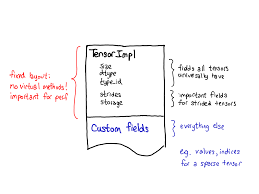 fixed layout:
no virtual methods!
important for perf
TensorImpl
size
dtype
type_id
strides
storage
Custom fields
fields all tensors
universally have
important fields
for strided tensors
everything else
e.g., values, indices
for a sparse tensor